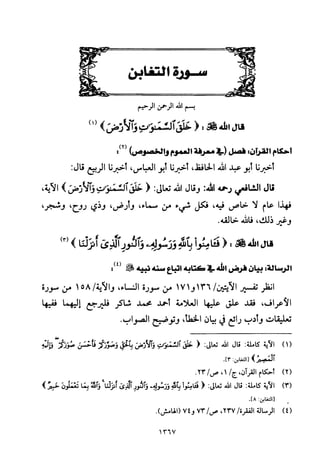 سورة التغابن
بسم الله الرحمن الرحيم
قال الله ﷻ : ﴿ خَلَقَ ٱلسَّمَٰوَٰتِ وَٱلْأَرْضَ ﴾ (١)
أحكام القرآن، فصل (في معرفة العموم والخصوص) (٢) :
أخبرنا أبو عبد الله الحافظ، أخبرنا أبو العباس، أخبرنا الربيع قال:
قال الشافعي رحمه الله: وقال الله تعالى: ﴿ خَلَقَ ٱلسَّمَٰوَٰتِ وَٱلْأَرْضَ ﴾ الآية،
فهذا عام لا خاص فيه، فكل شيء من سماء، وأرض، وذي روح، وشجر،
وغير ذلك، فالله خالقه.
قال الله ﷻ : ﴿ فَـَٔامِنُوا۟ بِٱللَّهِ وَرَسُولِهِۦ وَٱلنُّورِ ٱلَّذِىٓ أَنزَلْنَا ﴾ (٣)
الرسالة: بيان فرض الله في كتابه اتباع سنه نبيه ﷺ (٤) :
انظر تفسير الآيتين/١٣٦ و١٧١ من سورة النساء، والآية/ ١٥٨ من سورة
الأعراف، فقد علق عليها العلامة أحمد محمد شاكر فليرجع إليهما ففيها
تعليقات وأدب رائع في بيان الخطأ، وتوضيح الصواب.
(١) الآية كاملة: قال الله تعالى: ﴿ خَلَقَ ٱلسَّمَٰوَٰتِ وَٱلْأَرْضَ بِٱلْحَقِّ وَصَوَّرَكُمْ فَأَحْسَنَ صُوَرَكُمْ ۖ وَإِلَيْهِ
ٱلْمَصِيرُ ﴾ [التغابن: ٣].
(٢) أحكام القرآن، ج/ ١، ص/ ٢٣.
(٣) الآية كاملة: قال الله تعالى: ﴿ فَـَٔامِنُوا۟ بِٱللَّهِ وَرَسُولِهِۦ وَٱلنُّورِ ٱلَّذِىٓ أَنزَلْنَا ۚ وَٱللَّهُ بِمَا تَعْمَلُونَ خَبِيرٌ ﴾
[التغابن: ٨].
(٤) الرسالة الفقرة/ ٢٣٧، ص/ ٧٣ و٧٤ (الهامش).
١٣٦٧